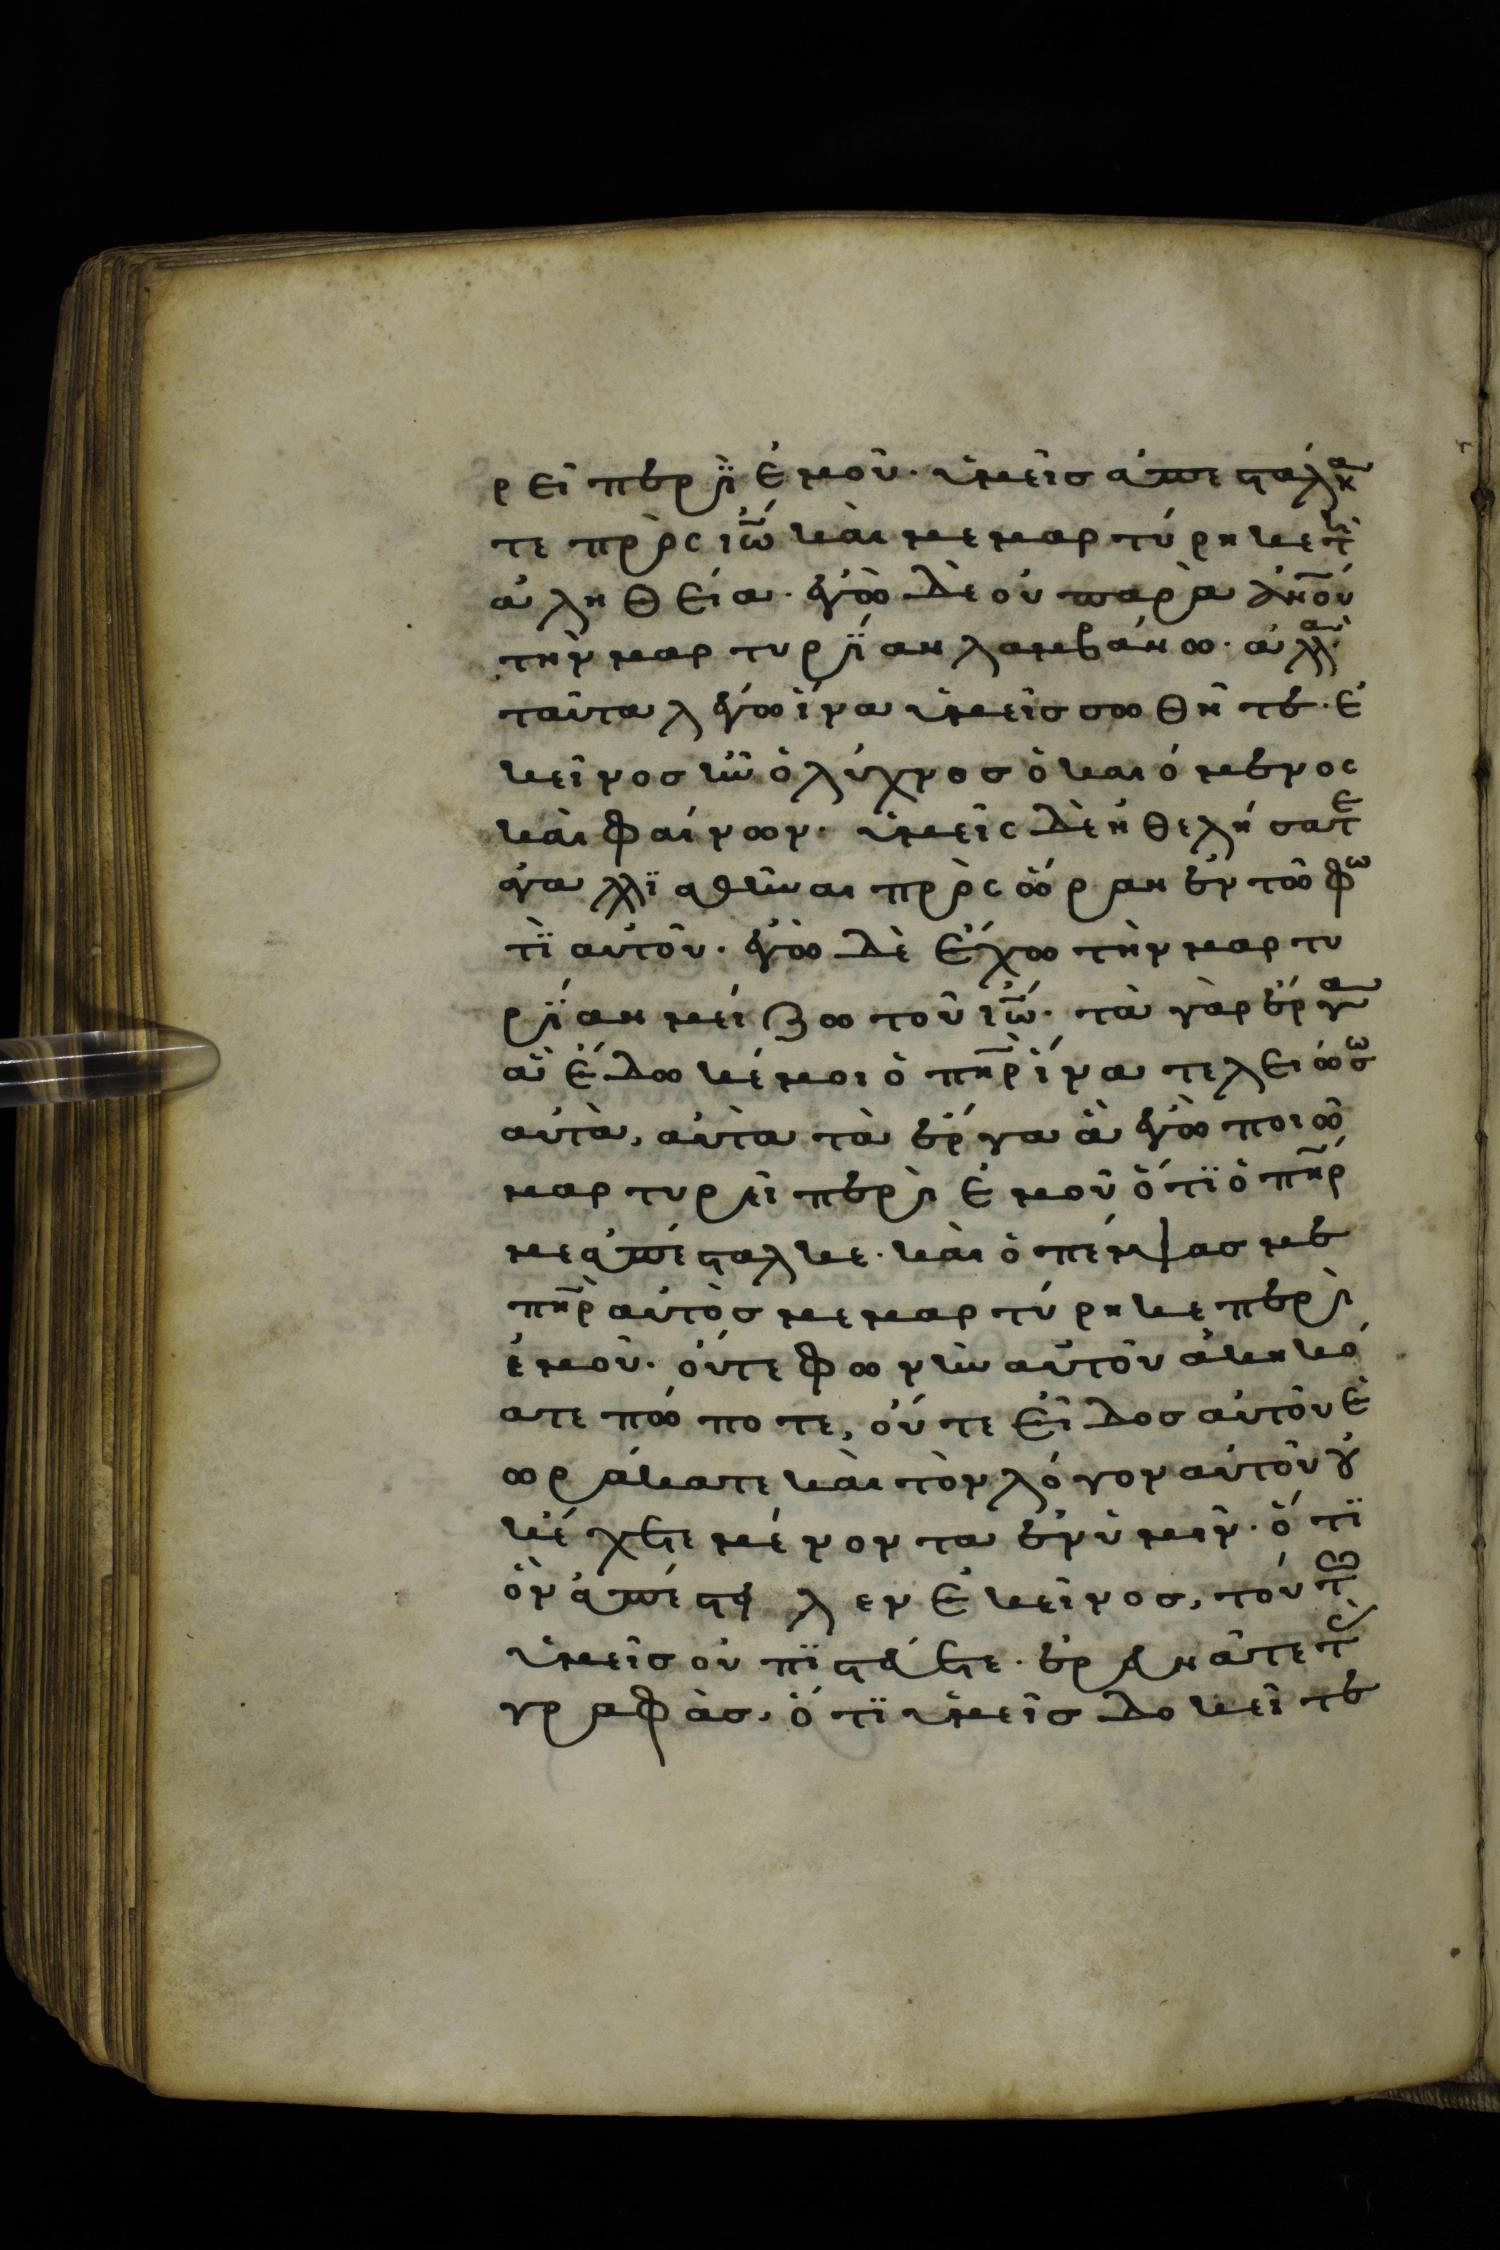 ρεῖ περῒ ἐμοῦ· ὑμεῖσ ἀπεσταλκα
τε πρὸς ἰω̅ καὶ μεμαρτύρηκε τῆ
ἀληθεία· ἐγὼ δὲ οὐ παρὰ ἀν̅ου
τὴν μαρτυρΐαν λαμβάνω· ἀλλὰ
ταῦτα λέγω ἵνα ὑμεῖσ σωθῆτε· ἐ
κεῖνοσ ἦν ὁ λύχνοσ ὁ καιόμενος
καὶ φαίνων· ὑμεῖς δὲ ἠθελήσατε
ἀγαλλϊασθῆναι πρὸς ὥραν ἐν τῶ φω
τῒ αὐτοῦ· ἐγὼ δὲ ἔχω τὴν μαρτυ
ρΐαν μείζω τοῦ ἰω̅· τὰ γὰρ ἔργα
ἃ ἔδωκέ μοι ὁ πη̅ρ ἵνα τελειώσω
αὐτὰ, αὐτὰ τὰ ἔργα ἃ ἐγὼ ποιῶ
μαρτυρεῖ περὶ ἐμοῦ ὅτϊ ὁ πη̅ρ
με ἀπέσταλκε· καὶ ὁ πέμψασ με
πη̅ρ αὐτὸσ μεμαρτύρηκε περὶ
ἐμοῦ· οὔτε φωνὴν αὐτοῦ ἀκηκό
ατε πώποτε, οὔτε εἶδοσ αὐτοῦ ἑ
ωράκατε καὶ τὸν λόγον αὐτοῦ οὐ
κ ἔχετε μένοντα ἐν ὑμῖν· ὅτϊ
ὃν ἀπέστειλεν ἐκεῖνοσ, τούτω
ὑμεῖσ οὐ πϊστεύετε· ἐρευνᾶτε τὰς
γραφὰσ, ὅτϊ ὑμεῖσ δοκεῖτε